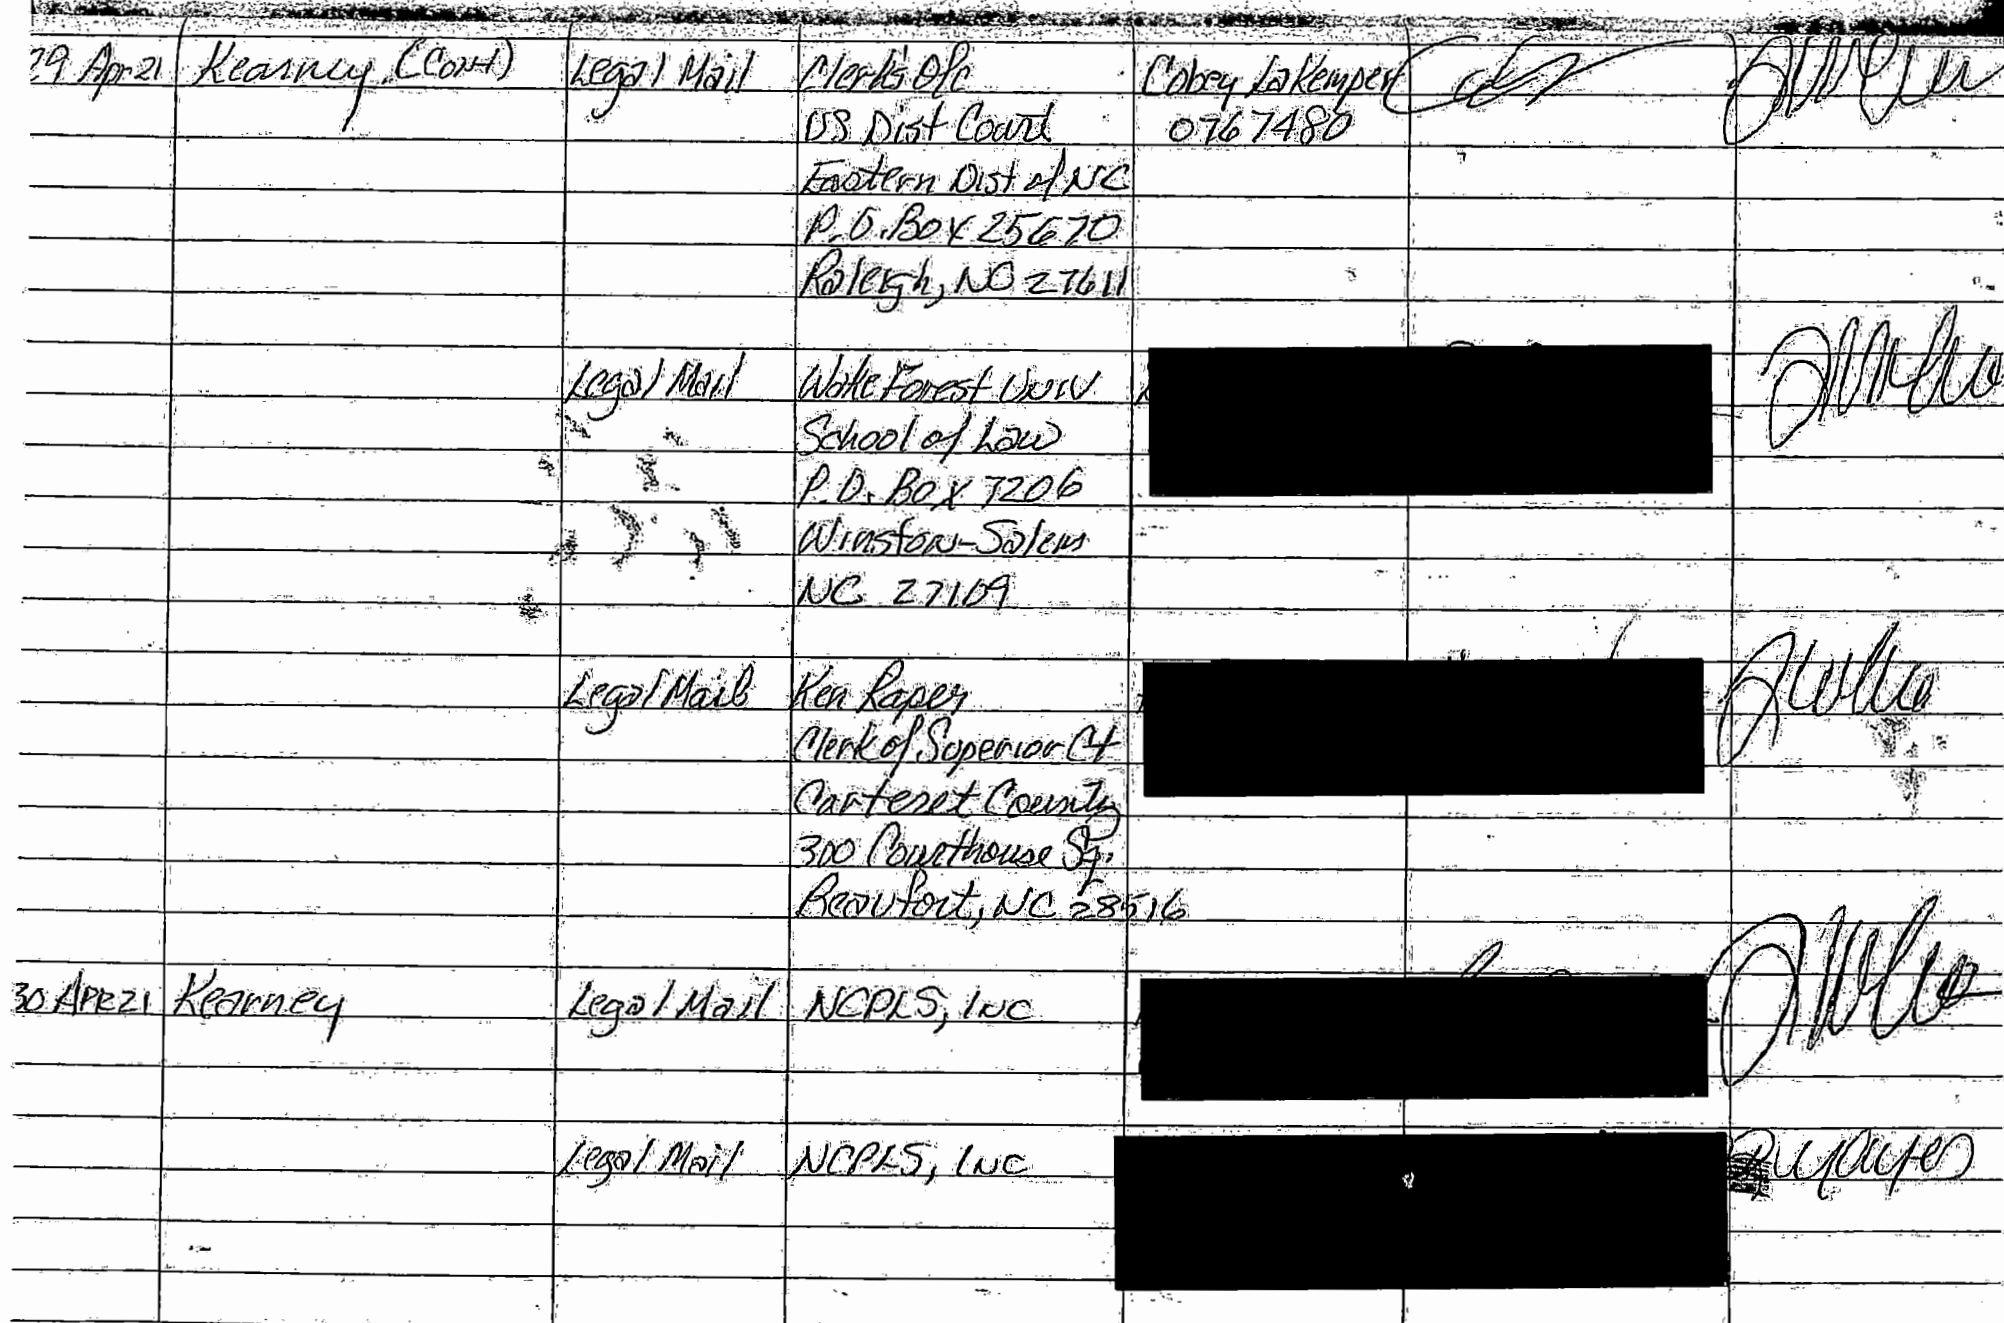 29 Apr 21 Kearney (Cont) Legal Mail Clerk's Ofc Cobey LaKemper
US Dist Court 0767480
Eastern Dist of NC
P.O. Box 25670
Raleigh, NC 27611
Legal Mail Wake Forest Univ.
School of Law
P.O. Box 7206
Winston-Salem
NC 27109
Legal Mail Ken Raper
Clerk of Superior Ct
Carteret County
300 Courthouse Sq.
Beaufort, NC 28516
30 APR 21 Kearney Legal Mail NCPLS, INC
Legal Mail NCPLS, INC